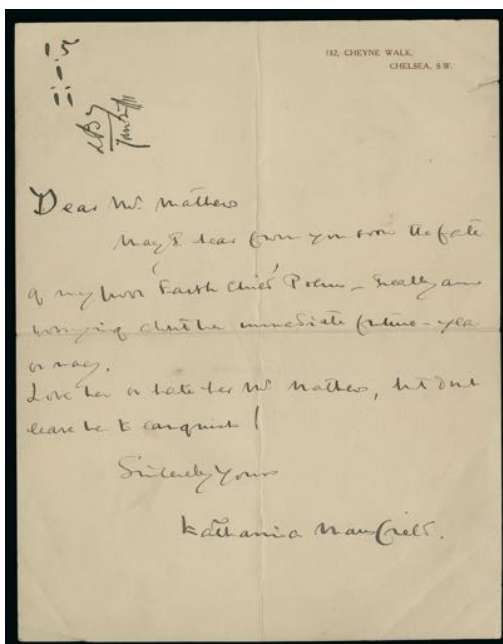 15
i
ii
132, CHEYNE WALK,
CHELSEA, S.W.
Dear Mr. Mathews
May I hear from you soon the fate
of my poor 'Earth Child' Poems – I really am
worrying about her immediate future – yea
or nay.
Love her or hate her Mr Mathews, but dont
leave her to languish!
Sincerely Yours
Katharina Mansfield.